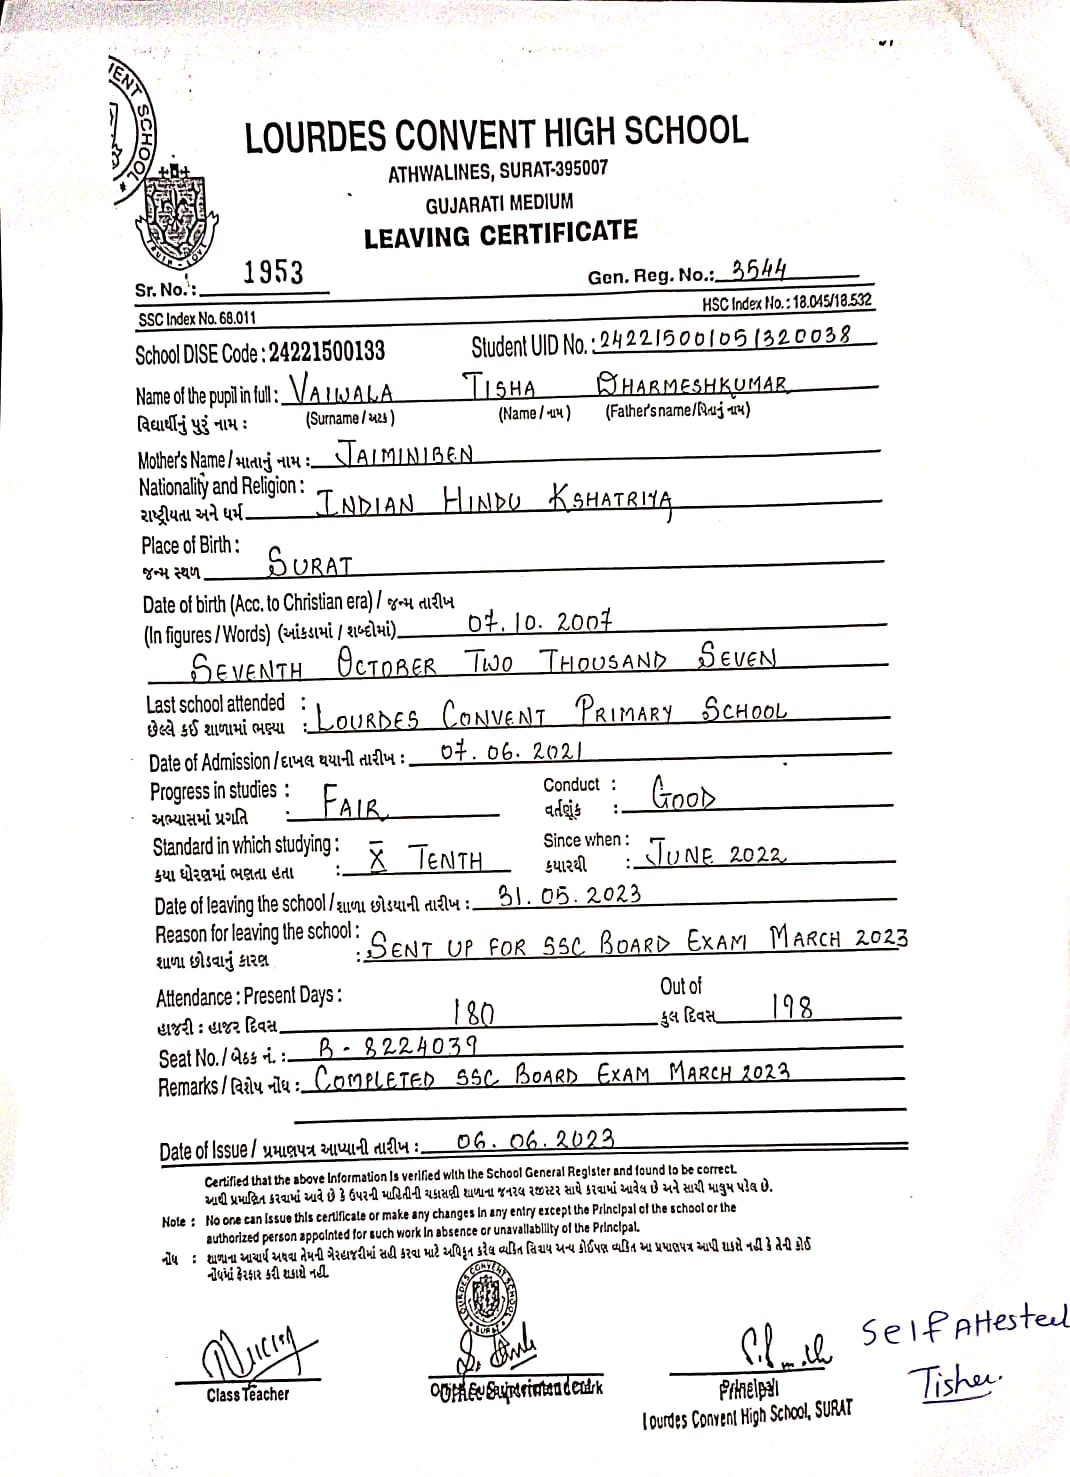 LOURDES CONVENT HIGH SCHOOL
ATHWALINES, SURAT-395007
GUJARATI MEDIUM
LEAVING CERTIFICATE
Sr. No.: 1953 Gen. Reg. No.: 3544
SSC Index No. 68.011 HSC Index No.: 18.045/18.532
School DISE Code : 24221500133 Student UID No.: 242215001051320038
Name of the pupil in full : VAIWALA TISHA DHARMESHKUMAR
વિદ્યાર્થીનું પુરું નામ : (Surname / અટક) (Name / નામ) (Father's name/પિતાનું નામ)
Mother's Name / માતાનું નામ : JAIMINIBEN
Nationality and Religion :
રાષ્ટ્રીયતા અને ધર્મ INDIAN HINDU KSHATRIYA
Place of Birth :
જન્મ સ્થળ SURAT
Date of birth (Acc. to Christian era) / જન્મ તારીખ
(In figures / Words) (આંકડામાં / શબ્દોમાં) 07.10.2007
SEVENTH OCTOBER TWO THOUSAND SEVEN
Last school attended :
છેલ્લે કઈ શાળામાં ભણ્યા : LOURDES CONVENT PRIMARY SCHOOL
Date of Admission / દાખલ થયાની તારીખ : 07.06.2021
Progress in studies : Conduct :
અભ્યાસમાં પ્રગતિ : FAIR વર્તણૂંક : GOOD
Standard in which studying : Since when :
કયા ધોરણમાં ભણતા હતા : X TENTH કયારથી : JUNE 2022
Date of leaving the school / શાળા છોડયાની તારીખ : 31.05.2023
Reason for leaving the school :
શાળા છોડવાનું કારણ : SENT UP FOR SSC BOARD EXAM MARCH 2023
Attendance : Present Days : Out of
હાજરી : હાજર દિવસ 180 કુલ દિવસ 198
Seat No. / બેઠક નં. : B - 8224039
Remarks / વિશેષ નોંધ : COMPLETED SSC BOARD EXAM MARCH 2023
Date of Issue / પ્રમાણપત્ર આપ્યાની તારીખ : 06.06.2023
Certified that the above Information is verified with the School General Register and found to be correct.
આથી પ્રમાણિત કરવામાં આવે છે કે ઉપરની માહિતીની ચકાસણી શાળાના જનરલ રજીસ્ટર સાથે કરવામાં આવેલ છે અને સાચી માલુમ પડેલ છે.
Note : No one can issue this certificate or make any changes in any entry except the Principal of the school or the
authorized person appointed for such work in absence or unavailability of the Principal.
નોંધ : શાળાના આચાર્ય અથવા તેમની ગેરહાજરીમાં સહી કરવા માટે અધિકૃત કરેલ વ્યક્તિ સિવાય અન્ય કોઈપણ વ્યક્તિ આ પ્રમાણપત્ર આપી શકશે નહીં કે તેની કોઈ
નોંધમાં ફેરફાર કરી શકાશે નહીં.
LOURDES CONVENT SCHOOL
SURAT
Self Attested
Tisha.
Class Teacher Principal
Lourdes Convent High School, SURAT